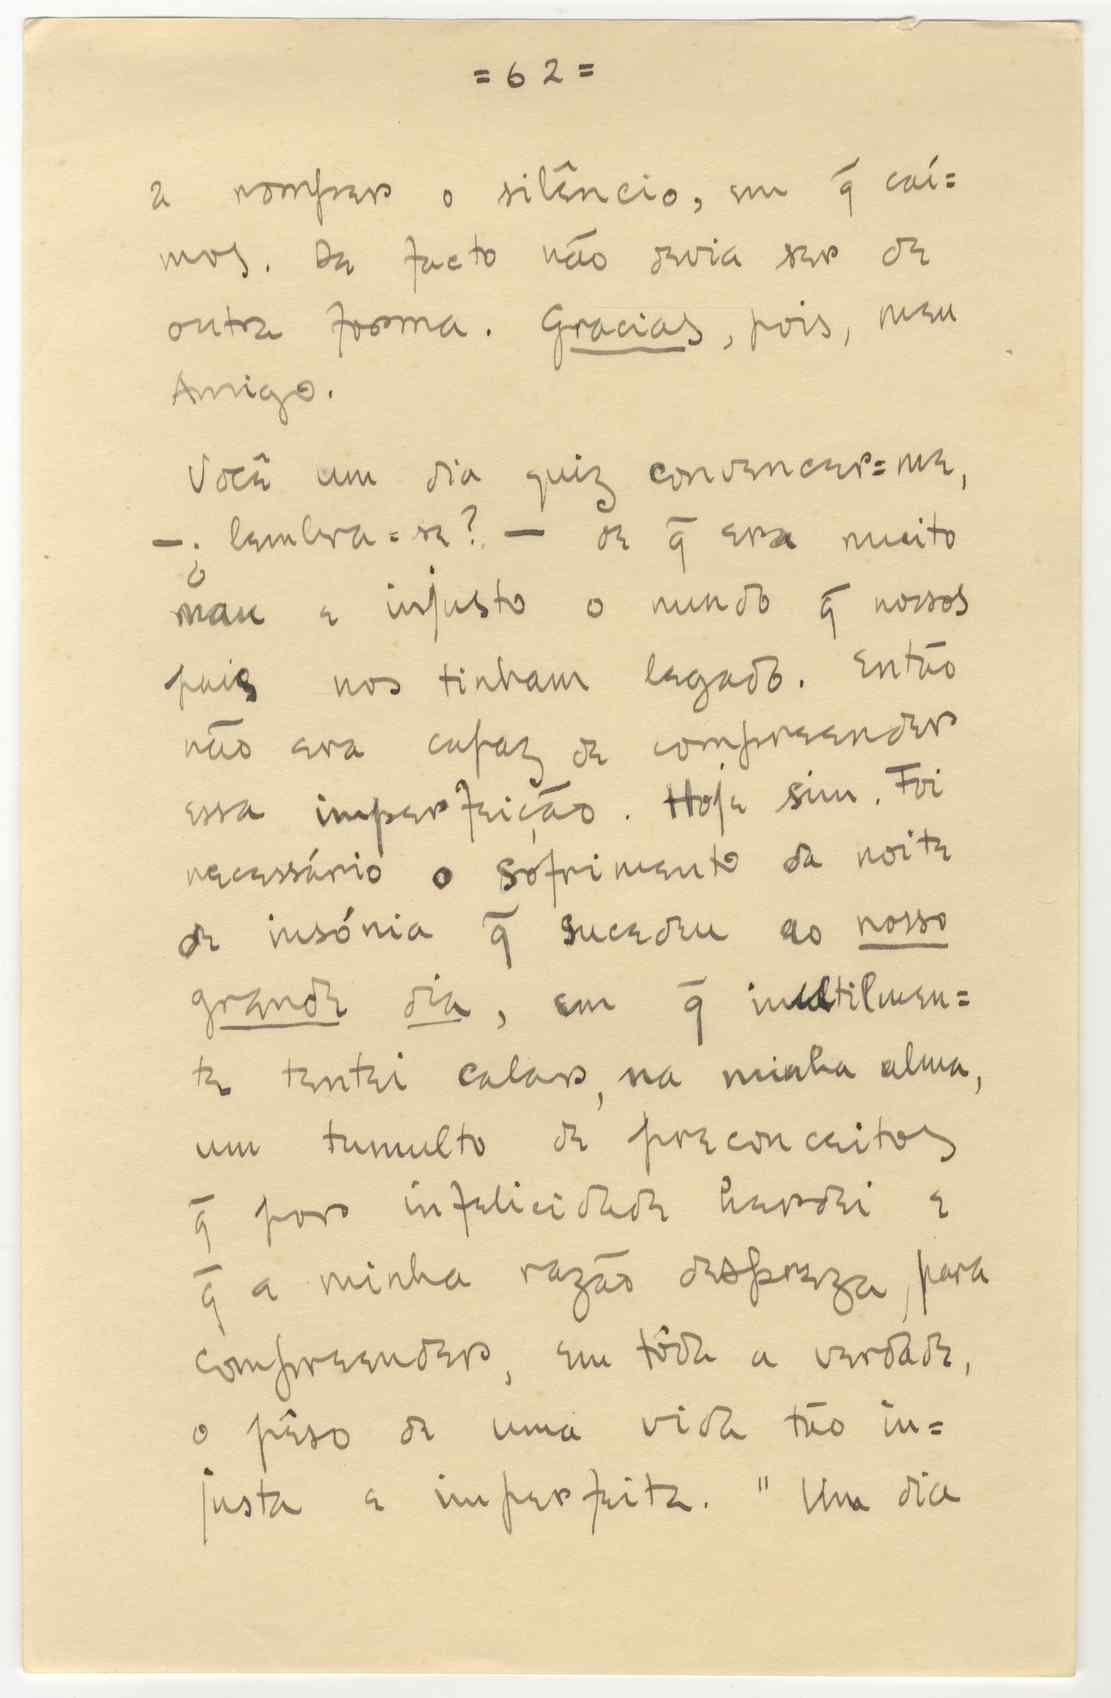 = 62 =
a romper o silêncio, em q̄ caí=
mos. De facto não devia ser de
outra forma. Gracias, pois, meu
Amigo.
Você um dia quiz convencer=me,
— ¿ lembra=se? — de q̄ era muito
mau e injusto o mundo q̄ nossos
pais nos tinham legado. Então
não era capaz de compreender
essa imperfeição. Hoje sim. Foi
necessário o sofrimento da noite
de insónia q̄ sucedeu ao nosso
grande dia, em q̄ inutilmen=
te tentei calar, na minha alma,
um tumulto de preconceitos
q̄ por infelicidade herdei e
q̄ a minha razão despreza, para
compreender, em tôda a verdade,
o pêso de uma vida tão in=
justa e imperfeita. " Um dia